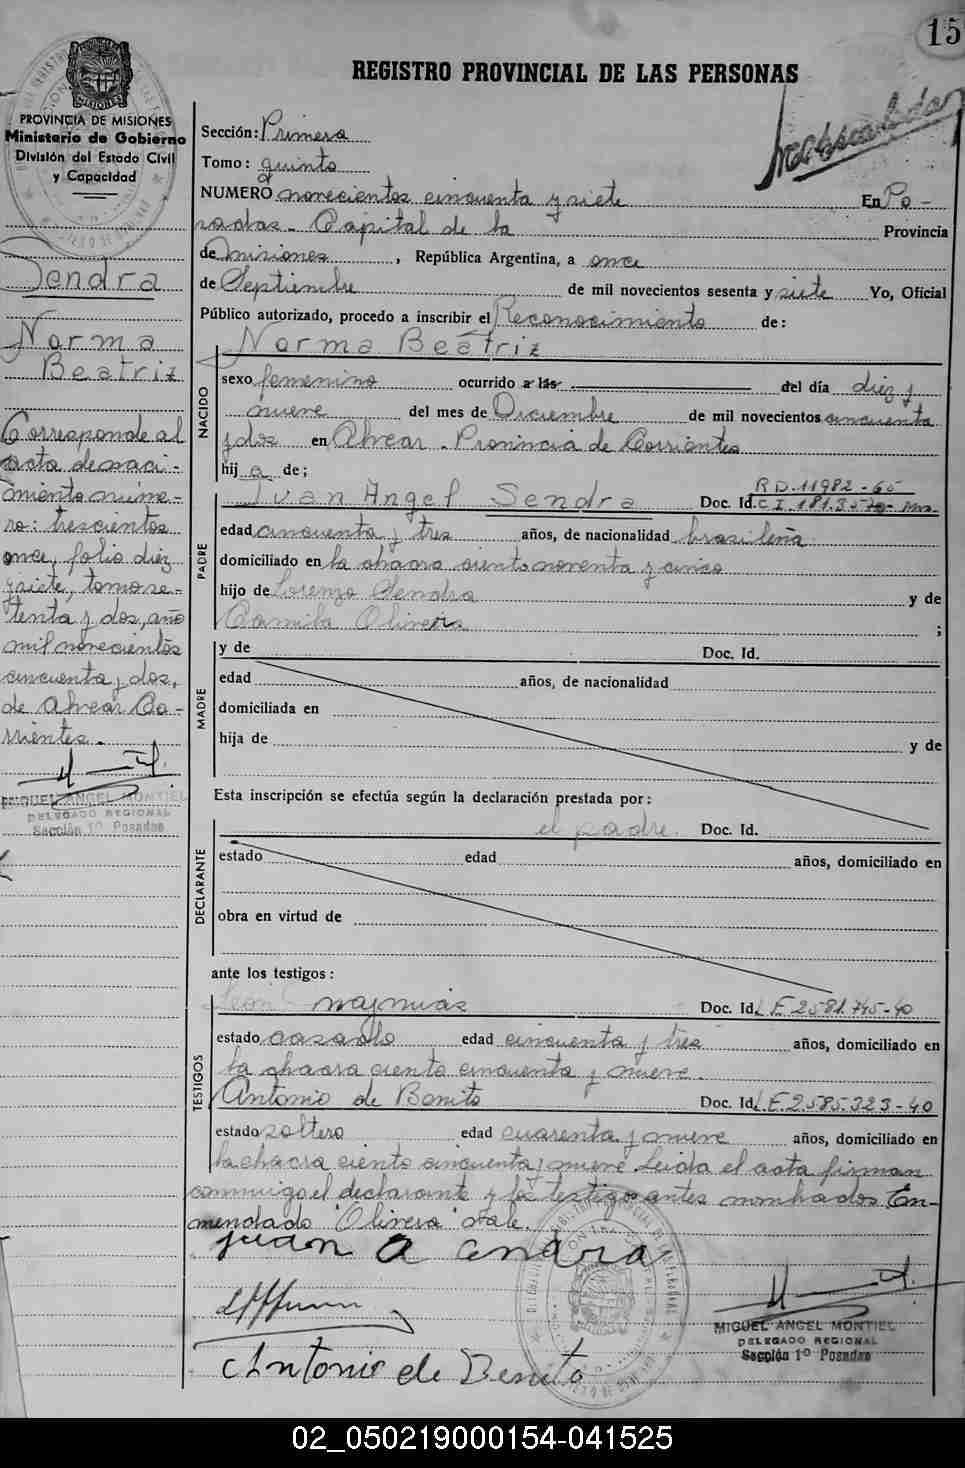 15
REGISTRO PROVINCIAL DE LAS PERSONAS
PROVINCIA DE MISIONES
Ministerio de Gobierno
División del Estado Civil
y Capacidad
Sección: Primera
Tomo: quinto
NUMERO novecientos cincuenta y siete En Po-
sadas - Capital de la Provincia
de Misiones, República Argentina, a once
de Septiembre de mil novecientos sesenta y siete Yo, Oficial
Público autorizado, procedo a inscribir el Reconocimiento de:
Sendra
Norma
Beatriz
Corresponde al
acta de naci-
miento nume-
ro: trescientos
once, folio diez
y siete, tomo se-
tenta y dos, año
mil novecientos
cincuenta y dos,
de Alvear Co-
rrientes.
MIGUEL ANGEL MONTIEL
DELEGADO REGIONAL
Sección 1º Posadas
NACIDO
Norma Beatriz
sexo femenino ocurrido a las del día diez y
nueve del mes de Diciembre de mil novecientos cincuenta
y dos en Alvear - Provincia de Corrientes
hija de;
PADRE
R D. 11982-65
Juan Angel Sendra Doc. Id. C I. 181.3570- Mns.
edad cincuenta y tres años, de nacionalidad brasileña
domiciliado en la chacra ciento noventa y cinco
hijo de Lorenzo Sendra y de
Camila Olivera ;
MADRE
y de Doc. Id.
edad años, de nacionalidad
domiciliada en
hija de y de
Esta inscripción se efectúa según la declaración prestada por:
DECLARANTE
el padre. Doc. Id.
estado edad años, domiciliado en
obra en virtud de
ante los testigos:
TESTIGOS
León Doc. Id. L E. 2581.745-40
estado casado edad cincuenta y tres años, domiciliado en
la chacra ciento cincuenta y nueve.
Antonio de Benito Doc. Id. L.E. 2.585.323-40
estado soltero edad cuarenta y nueve años, domiciliado en
la chacra ciento cincuenta y nueve Leida el acta firman
conmigo el declarante y los testigos antes nombrados. En-
mendado "Olivera" vale.
juan A cendra
Antonio de Benito
MIGUEL ANGEL MONTIEL
DELEGADO REGIONAL
Sección 1º Posadas
02_050219000154-041525